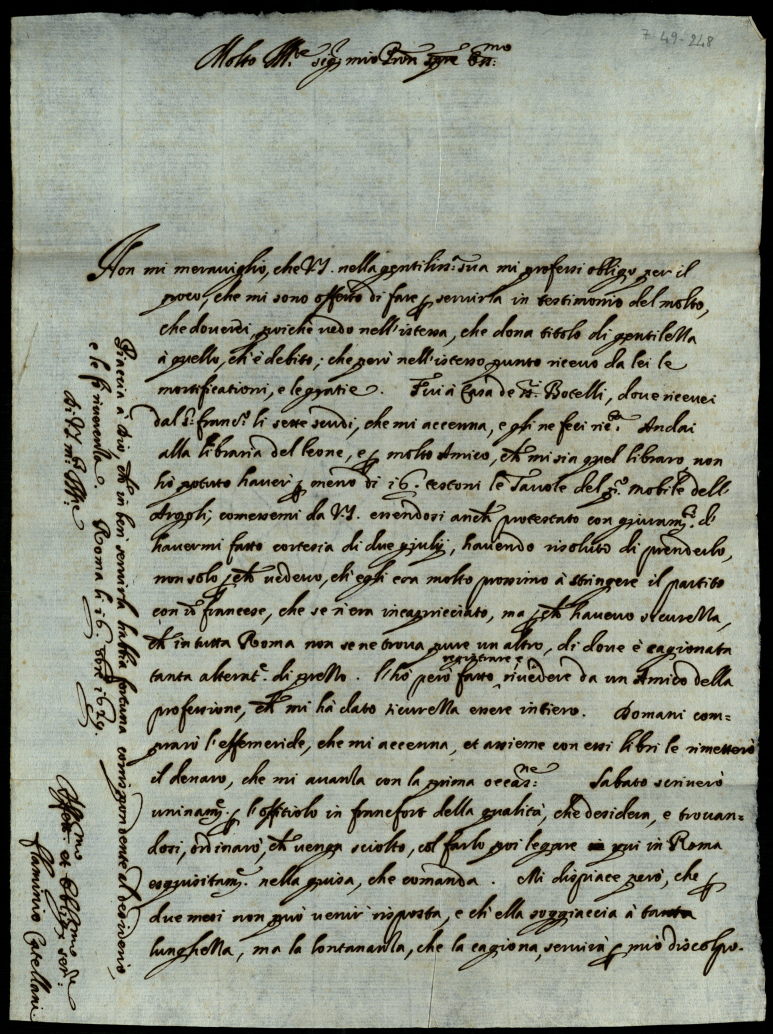 7-49-248
Molto Mag.re sig.r mio Pron sempre oss.mo
Non mi meraviglio, che VS. nella gentiliss.a sua mi professi obligo per il
poco, che mi sono offerto di fare p servirla in testimonio del molto,
che doverei, poiche vedo nell'istessa, che dona titolo di gentilezza
à quello, ch'è debito; che però nell'istesso punto ricevo da lei le
mortificationi, e le gratie. Fui à Casa de SS.ri Bocelli, dove ricevei
dal S.r Franc.o li sette scudi, che mi accenna, e gli ne feci ric.ta Andai
alla libraria del leone, e p molto Amico, ch mi sia quel libraro, non
hò potuto haver p meno di 16. testoni le Tavole del p.o mobile dell'
Argoli, comessemi da VS. essendosi anch protestato con giuram.to d'
havermi fatto cortesia di due giulij, havendo risoluto di prenderlo,
non solo p ch vedevo, ch'egli era molto prossimo à stringere il partito
con un francese, che se n'era incapricciato, ma p ch havevo sicurezza,
ch in tutta Roma non se ne trova pure un altro, di dove è cagionata
tanta alterat.e di prezzo. l'hò però fatto registrare e rivedere da un Amico della
professione, ch mi hà dato sicurezza essere intiero. Domani com=
prarò l'effemeride, che mi accenna, et assieme con essi libri le rimetterò
il denaro, che mi avanza con la prima occas.ne Sabato scriverò
uninam.te p l'offitiolo in Francfort della qualità, che desidera, e trovan=
dosi, ordinarò, ch venga sciolto, col farlo poi legare qui in Roma
esquisitam.te nella guisa, che comanda. Mi dispiace però, che p
due mesi non può venir risposta, e ch'ella soggiaccia à tanta
lunghezza, ma la lontananza, che la cagiona, servirà p mio discolpo.
Piaccia à Dio, ch in ben servirla habbia fortuna corrispondente al desiderio,
e le fo riverenza. Roma li 16. 8bre 1679.
Di VS. m.to Ill.re
Aff.mo et oblig.mo ser.re
Flaminio Catellani